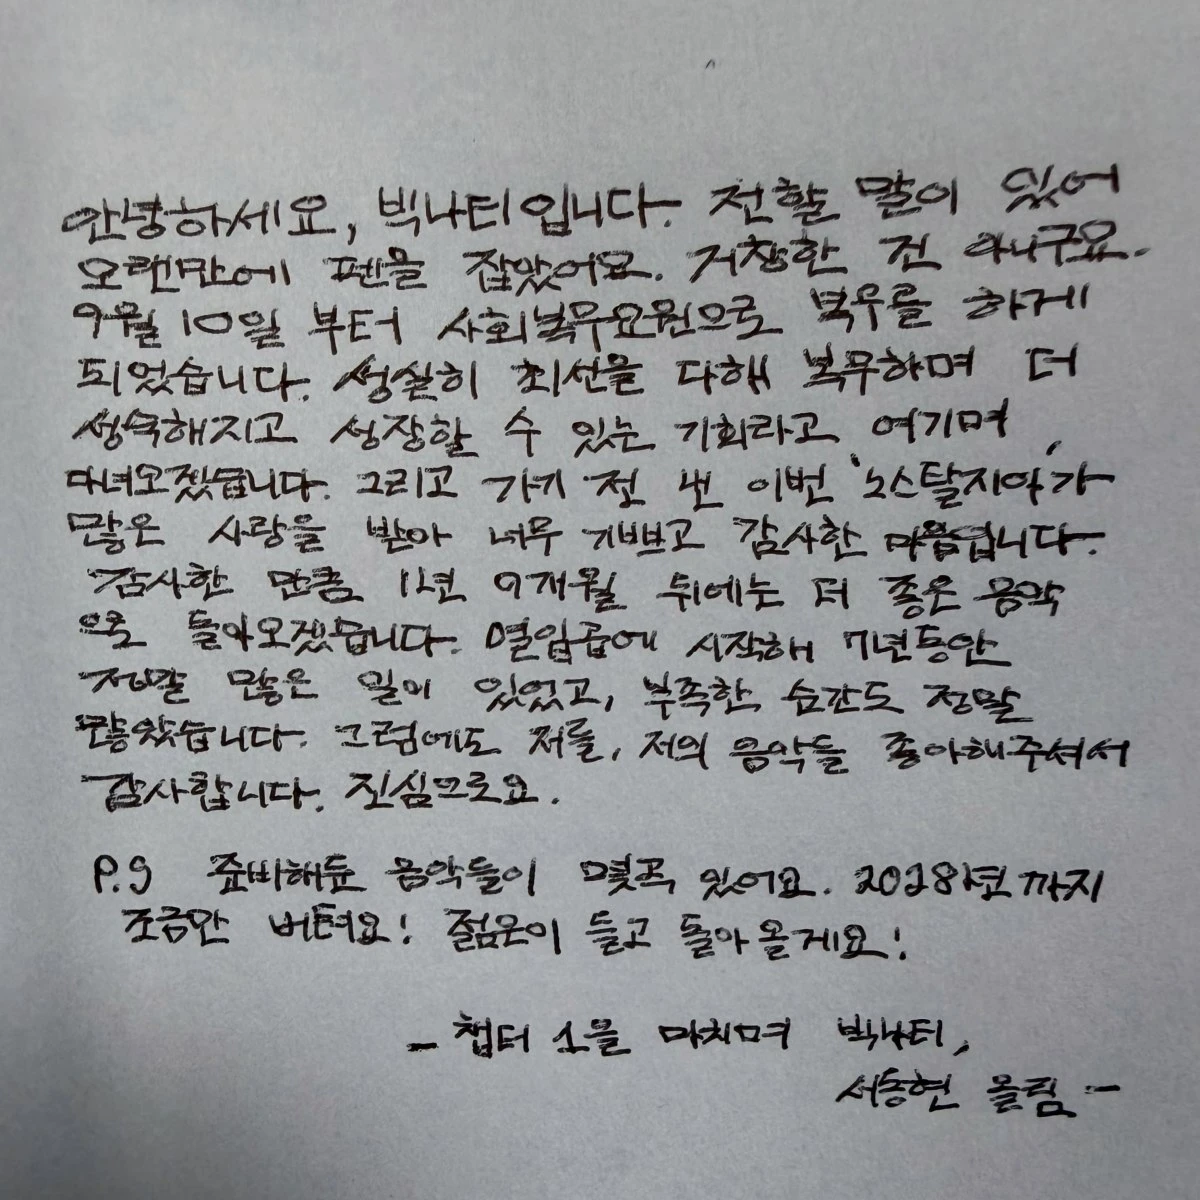 안녕하세요, 빅나티입니다. 전할 말이 있어
오랜만에 펜을 잡았어요. 거창한 건 아니구요.
9월 10일 부터 사회복무요원으로 복무를 하게
되었습니다. 성실히 최선을 다해 복무하며 더
성숙해지고 성장할 수 있는 기회라고 여기며
다녀오겠습니다. 그리고 가기 전 낸 이번 '노스탈지아'가
많은 사랑을 받아 너무 기쁘고 감사한 마음입니다.
감사한 만큼 1년 9개월 뒤에는 더 좋은 음악
으로 돌아오겠습니다. 열일곱에 시작해 7년동안
정말 많은 일이 있었고, 부족한 순간도 정말
많았습니다. 그럼에도 저를, 저의 음악들 좋아해주셔서
감사합니다. 진심으로요.
P.S 준비해둔 음악들이 몇곡 있어요. 2028년까지
조금만 버텨요! 젊은이 들고 돌아올게요!
- 챕터 1을 마치며 빅나티,
서동현 올림 -